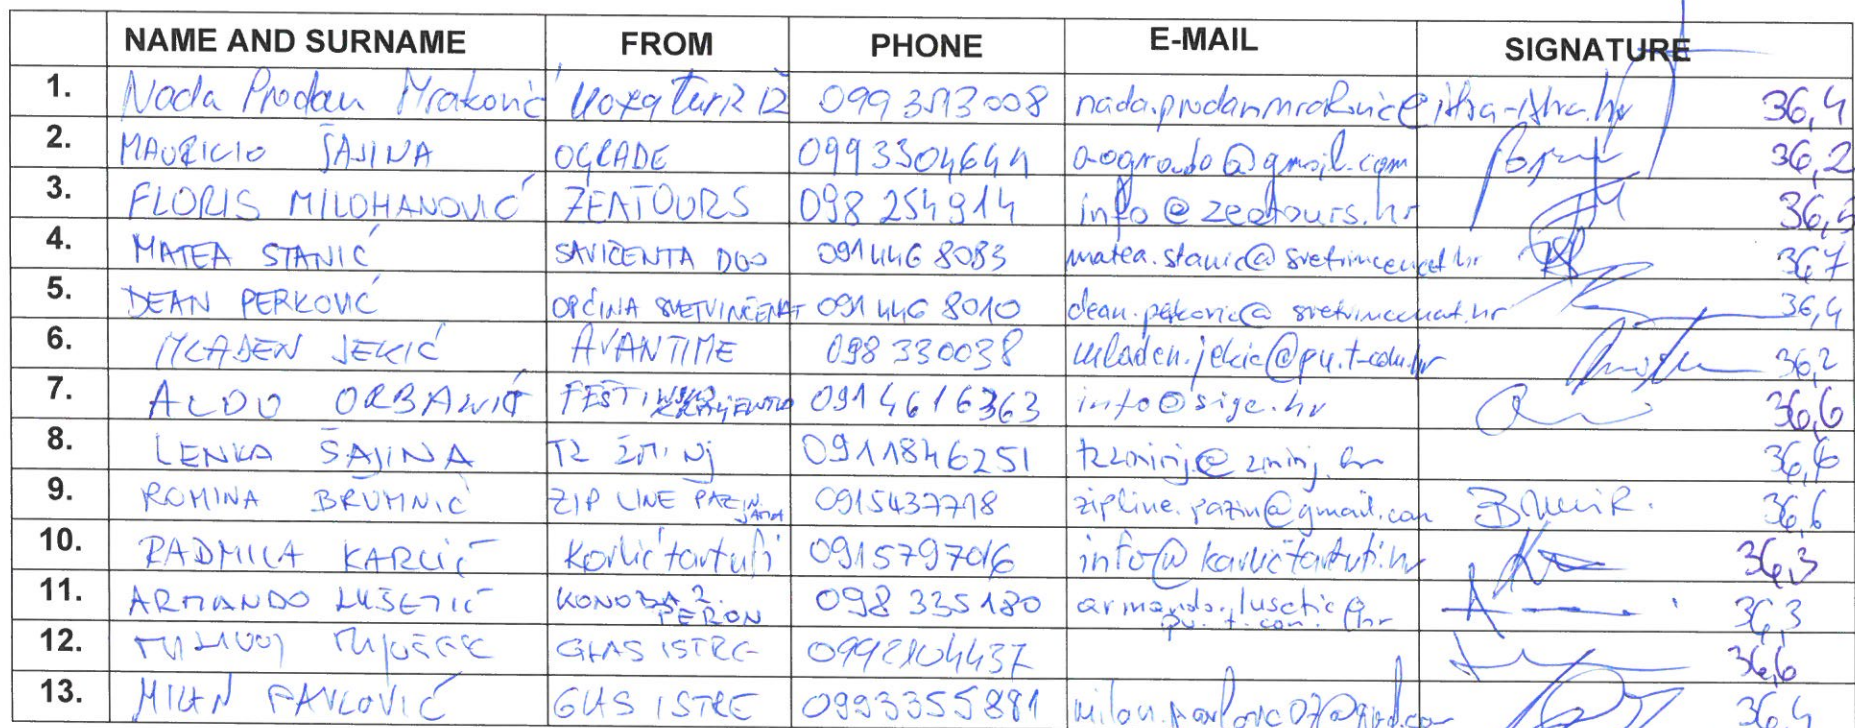 NAME AND SURNAME FROM PHONE E-MAIL SIGNATURE
1. Nada Prodan Mraković 099 3513008 nada.prodanmrakovic@istra-istria.hr 36,4
2. MAURICIO ŠAJINA OGRADE 0993304644 a-ograde@gmail.com 36,2
3. FLORIS MILOHANOVIĆ ZEATOURS 098 254914 info@zeatours.hr 36,5
4. MATEA STANIĆ SAVIČENTA DOO 091 446 8083 matea.stanic@svetvincenat.hr 36,7
5. DEAN PERKOVIĆ OPĆINA SVETVINČENAT 091 446 8010 dean.perkovic@svetvincenat.hr 36,4
6. MLADEN JEKIĆ AVANTIME 098 330038 mladen.jekic@pu.t-com.hr 36,2
7. ALDO ORBANIĆ FEŠTINSKO 091 4616363 info@sige.hr 36,6
8. LENKA ŠAJINA TZ ŽMINJ 0911846251 tzzminj@zminj.hr
9. ROMINA BRUMNIĆ ZIP LINE PAZIN JAMA 0915437718 zipline.pazin@gmail.com 36,6
10. RADMILA KARLIĆ Karlić tartufi 0915797016 info@karlictartufi.hr 36,3
11. ARMANDO LUŠETIĆ KONOBA 2. PERON 098 335180 armando.lusetic@pu.t-com.hr 36,3
12. GLAS ISTRE 36,6
13. MILAN PAVLOVIĆ GLAS ISTRE 0993355881 36,4